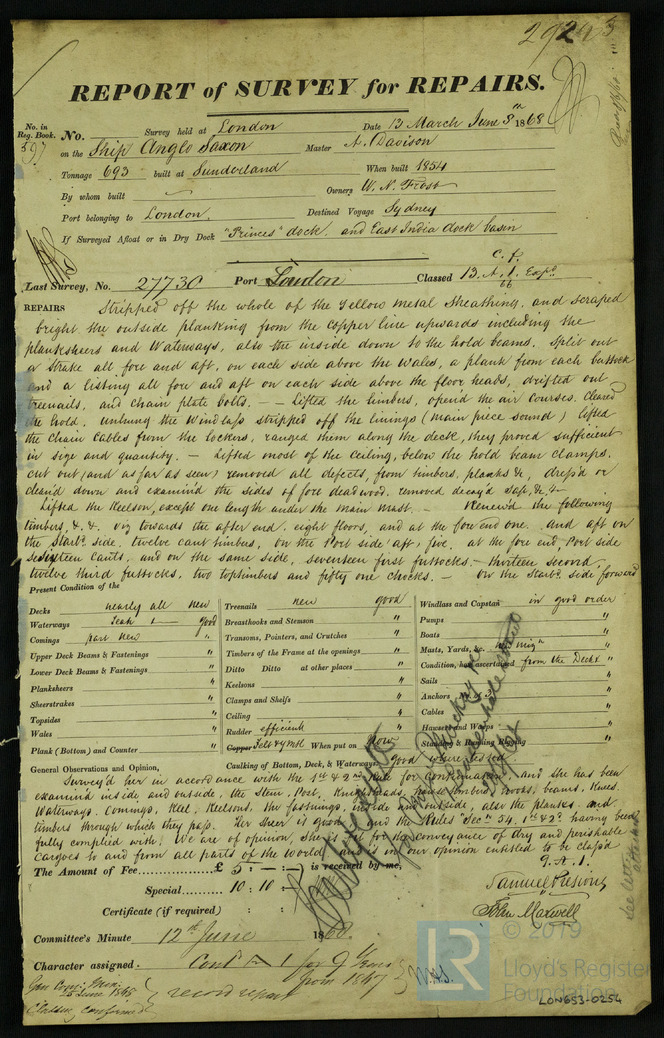 29293
REPORT of SURVEY for REPAIRS.
No. in Reg. Book.
597
No. Survey held at London Date 13 March June 8th 1868
on the Ship Anglo Saxon Master A. Davison
Tonnage 693 built at Sunderland When built 1854
By whom built Owners W. N. Frost
Port belonging to London. Destined Voyage Sydney
If Surveyed Afloat or in Dry Dock "Princes" dock. and East India dock basin
Last Survey, No. 27730 Port London Classed 13. A. 1. Expd
66
REPAIRS Stripped off the whole of the Yellow metal Sheathing, and scraped
bright the outside planking from the Copper line upwards including the
planksheers and Waterways, also the inside down to the hold beams. Split out
a Strake all fore and aft, on each side above the Wales, a plank from each buttock
and a listing all fore and aft on each side above the floor heads, drifted out
treenails, and chain plate bolts. — Lifted the limbers, opend the air Courses. Cleared
the hold. unhung the Windlass stripped off the linings (main piece sound) lifted
the chain Cables from the lockers, ranged them along the deck, they proved sufficient
in size and quantity. — Lifted most of the Ceiling, below the hold beam clamps,
cut out (and as far as seen) removed all defects, from timbers, planks &c, dress'd or
clean'd down and examin'd the sides of fore deadwood. removed decay'd Sap, &c, &c—
Lifted the Keelson, except one length under the main mast. — Renew'd the following
timbers, &c. &c. viz towards the after end. eight floors, and at the fore end one. And aft on
the Starbd side. twelve cant timbers, on the Port side aft, five. at the fore end, Port side
sixteen Cants, and on the same side, seventeen first futtocks. — thirteen second,
twelve third futtocks, two toptimbers and fifty one chocks. — On the Starbd side forward
Present Condition of the
Decks nearly all new
Waterways Teak good
Comings part new "
Upper Deck Beams & Fastenings "
Lower Deck Beams & Fastenings "
Planksheers "
Sheerstrakes "
Topsides "
Wales "
Plank (Bottom) and Counter "
Treenails new good
Breasthooks and Stemson "
Transoms, Pointers, and Crutches "
Timbers of the Frame at the openings "
Ditto Ditto at other places "
Keelsons "
Clamps and Shelfs "
Ceiling "
Rudder efficient "
Copper Felt & YM When put on Now
Caulking of Bottom, Deck, & Waterways good where tested
Windlass and Capstan in good order
Pumps "
Boats "
Masts, Yards, &c. "
Condition, how ascertained from the Deck &
Sails "
Anchors "
Cables "
Hawsers and Warps "
Standing & Running Rigging "
General Observations and Opinion,
Survey'd her in accordance with the 1st & 2nd Rule for Continuation. And she has been
examin'd inside and outside, the Stem, Post, Knightheads, hawse timbers, hooks, beams, Knees.
Waterways. Comings, Keel, Keelsons, the fastnings, inside and outside, also the planks and
timbers through which they pass. Her sheer is good and the Rules Secn 54. 1st & 2d. having been
fully complied with. We are of opinion, she is fit for the conveyance of dry and perishable
Cargoes to and from all parts of the World, and is in our opinion entitled to be class'd
9. A. 1.
The Amount of Fee £ 5 : — : — is received by me,
Special 10 : 10 : —
Certificate (if required) : :
Samuel Presions
John Maxwell
Committee's Minute 12th June 1868.
Character assigned. Contd A 1 for 9 Years
from 1867
record repairs
Classing confirmed
see letter attached
LR
© 2019
Lloyd's Register
Foundation
LON653-0254